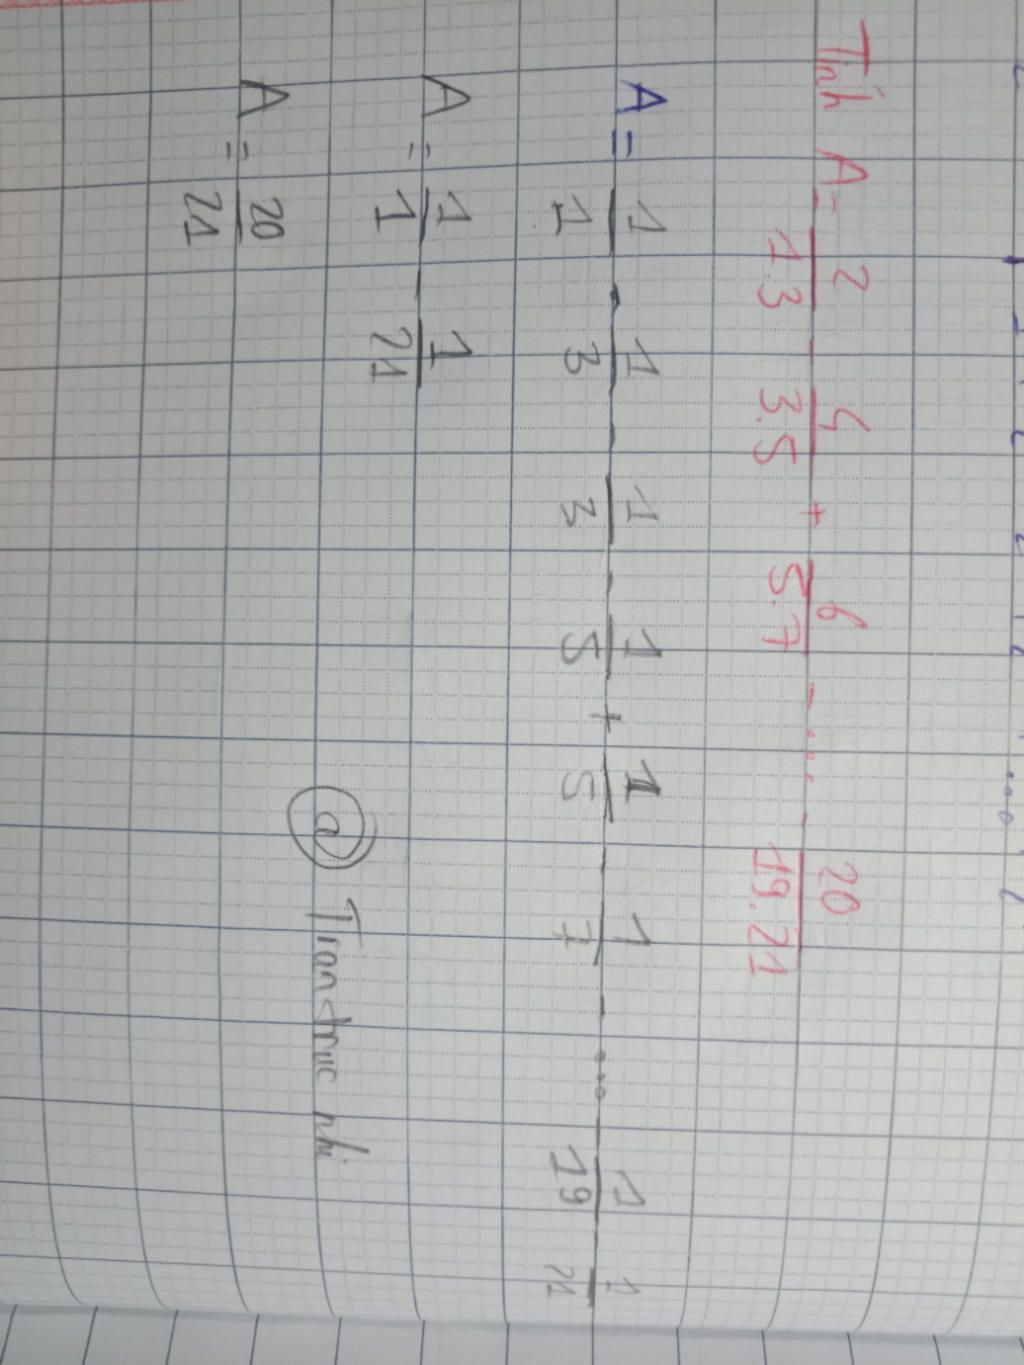 Tính A = 2/1.3 - 4/3.5 + 6/5.7 - ... - 20/19.21
A = 1/1 - 1/3 - 1/3 - 1/5 + 1/5 - 1/7 - ... - 1/19 - 1/21
A = 1/1 - 1/21
A = 20/21
@ Tran truc nhi